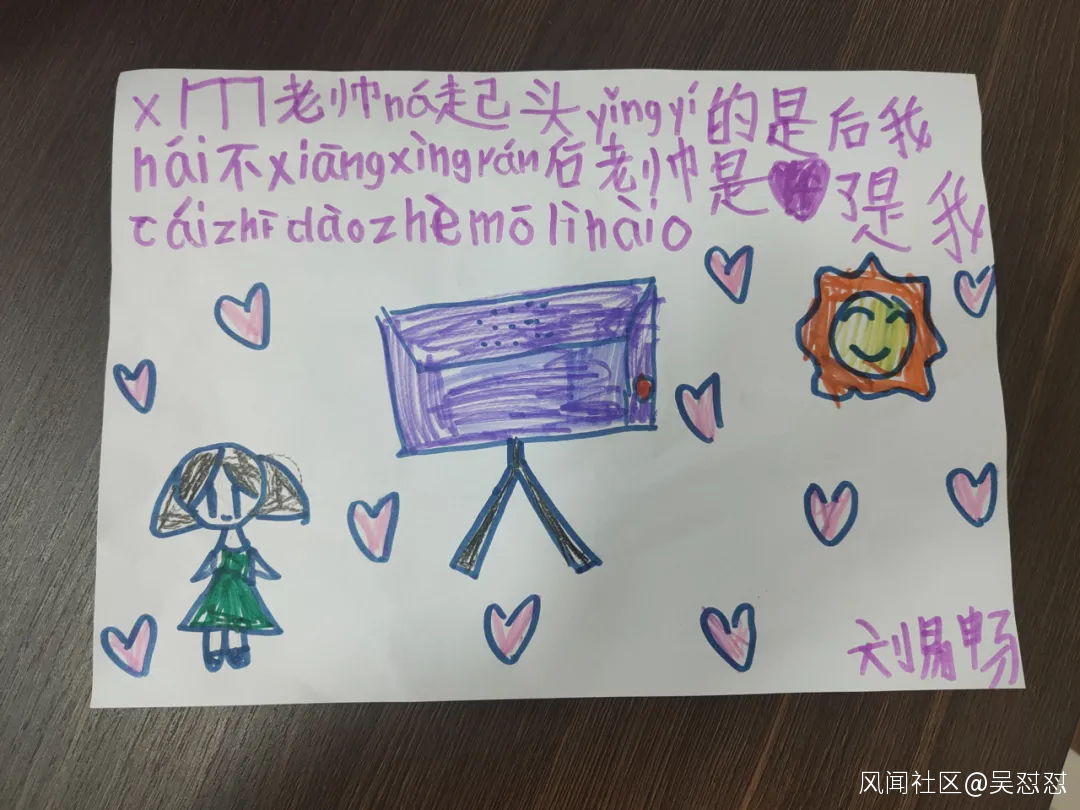 x 老帅ná走己头yǐngyí的是后我
hái不xiāngxìngrán后老帅是 了是我
cáizhīdàozhèmōlìhàio
刘易畅
风闻社区@吴怼怼